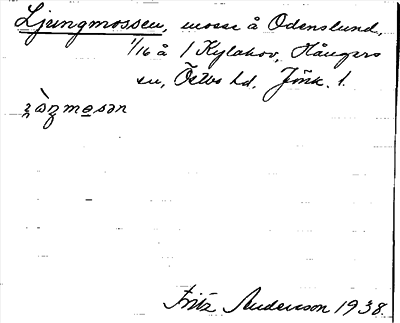 Ljungmossen, mosse å Odenslund,
1/16 å 1 Kylahov, Hångers
sn, Östbo hd, Jönk. l.
Fritz Andersson 1938.